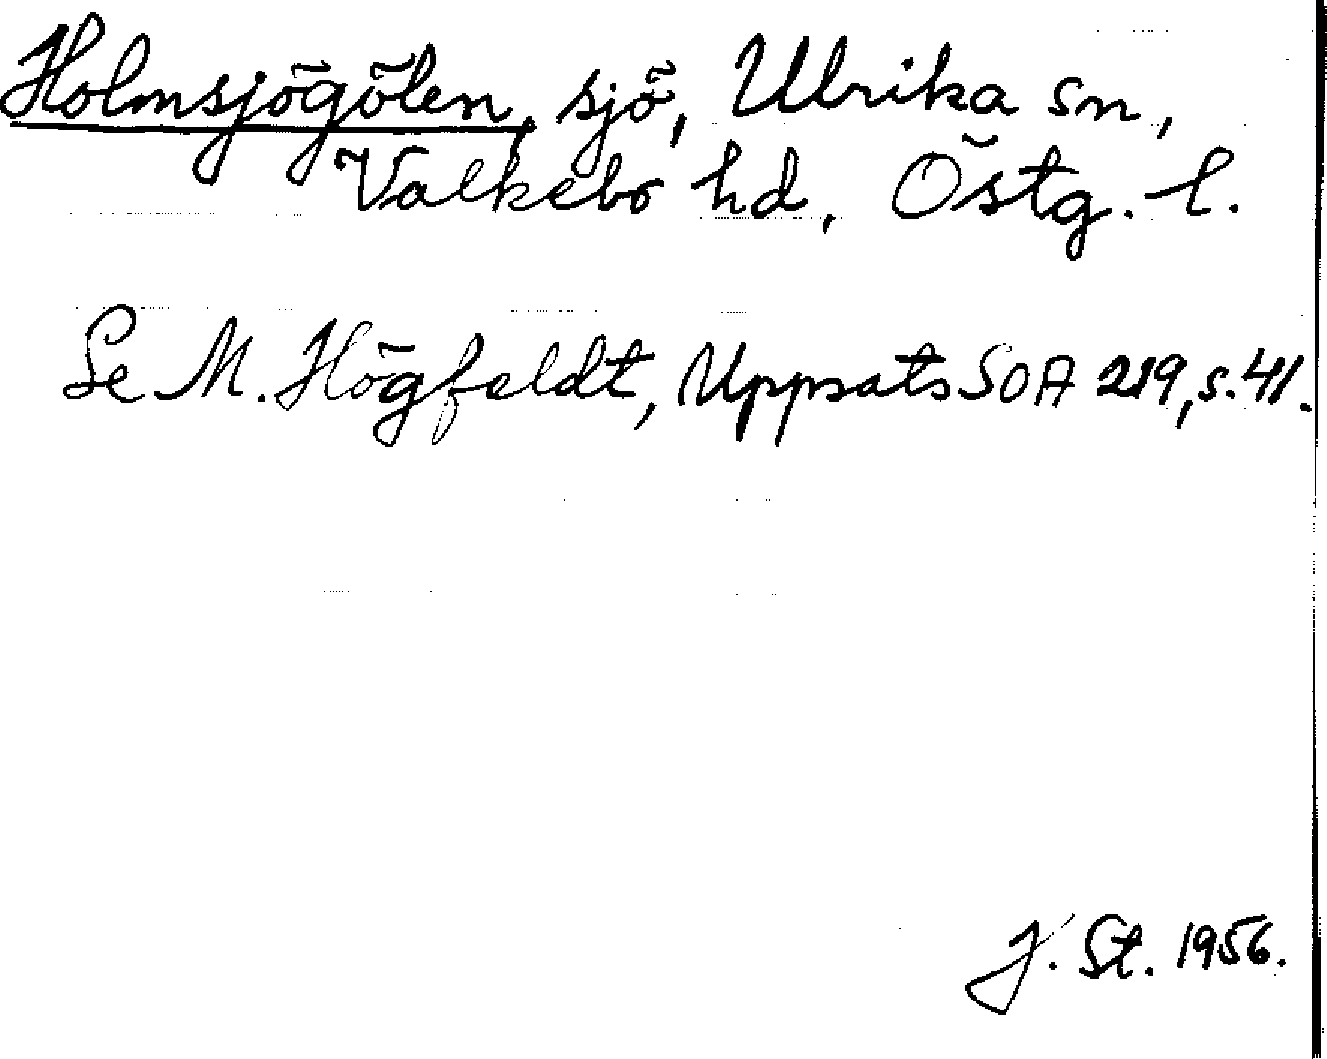 Holmsjögölen, sjö, Ulrika sn,
Valkebo hd, Östg. l.
Se M. Högfeldt, Uppsats SOA 219, s. 41.
J. St. 1956.